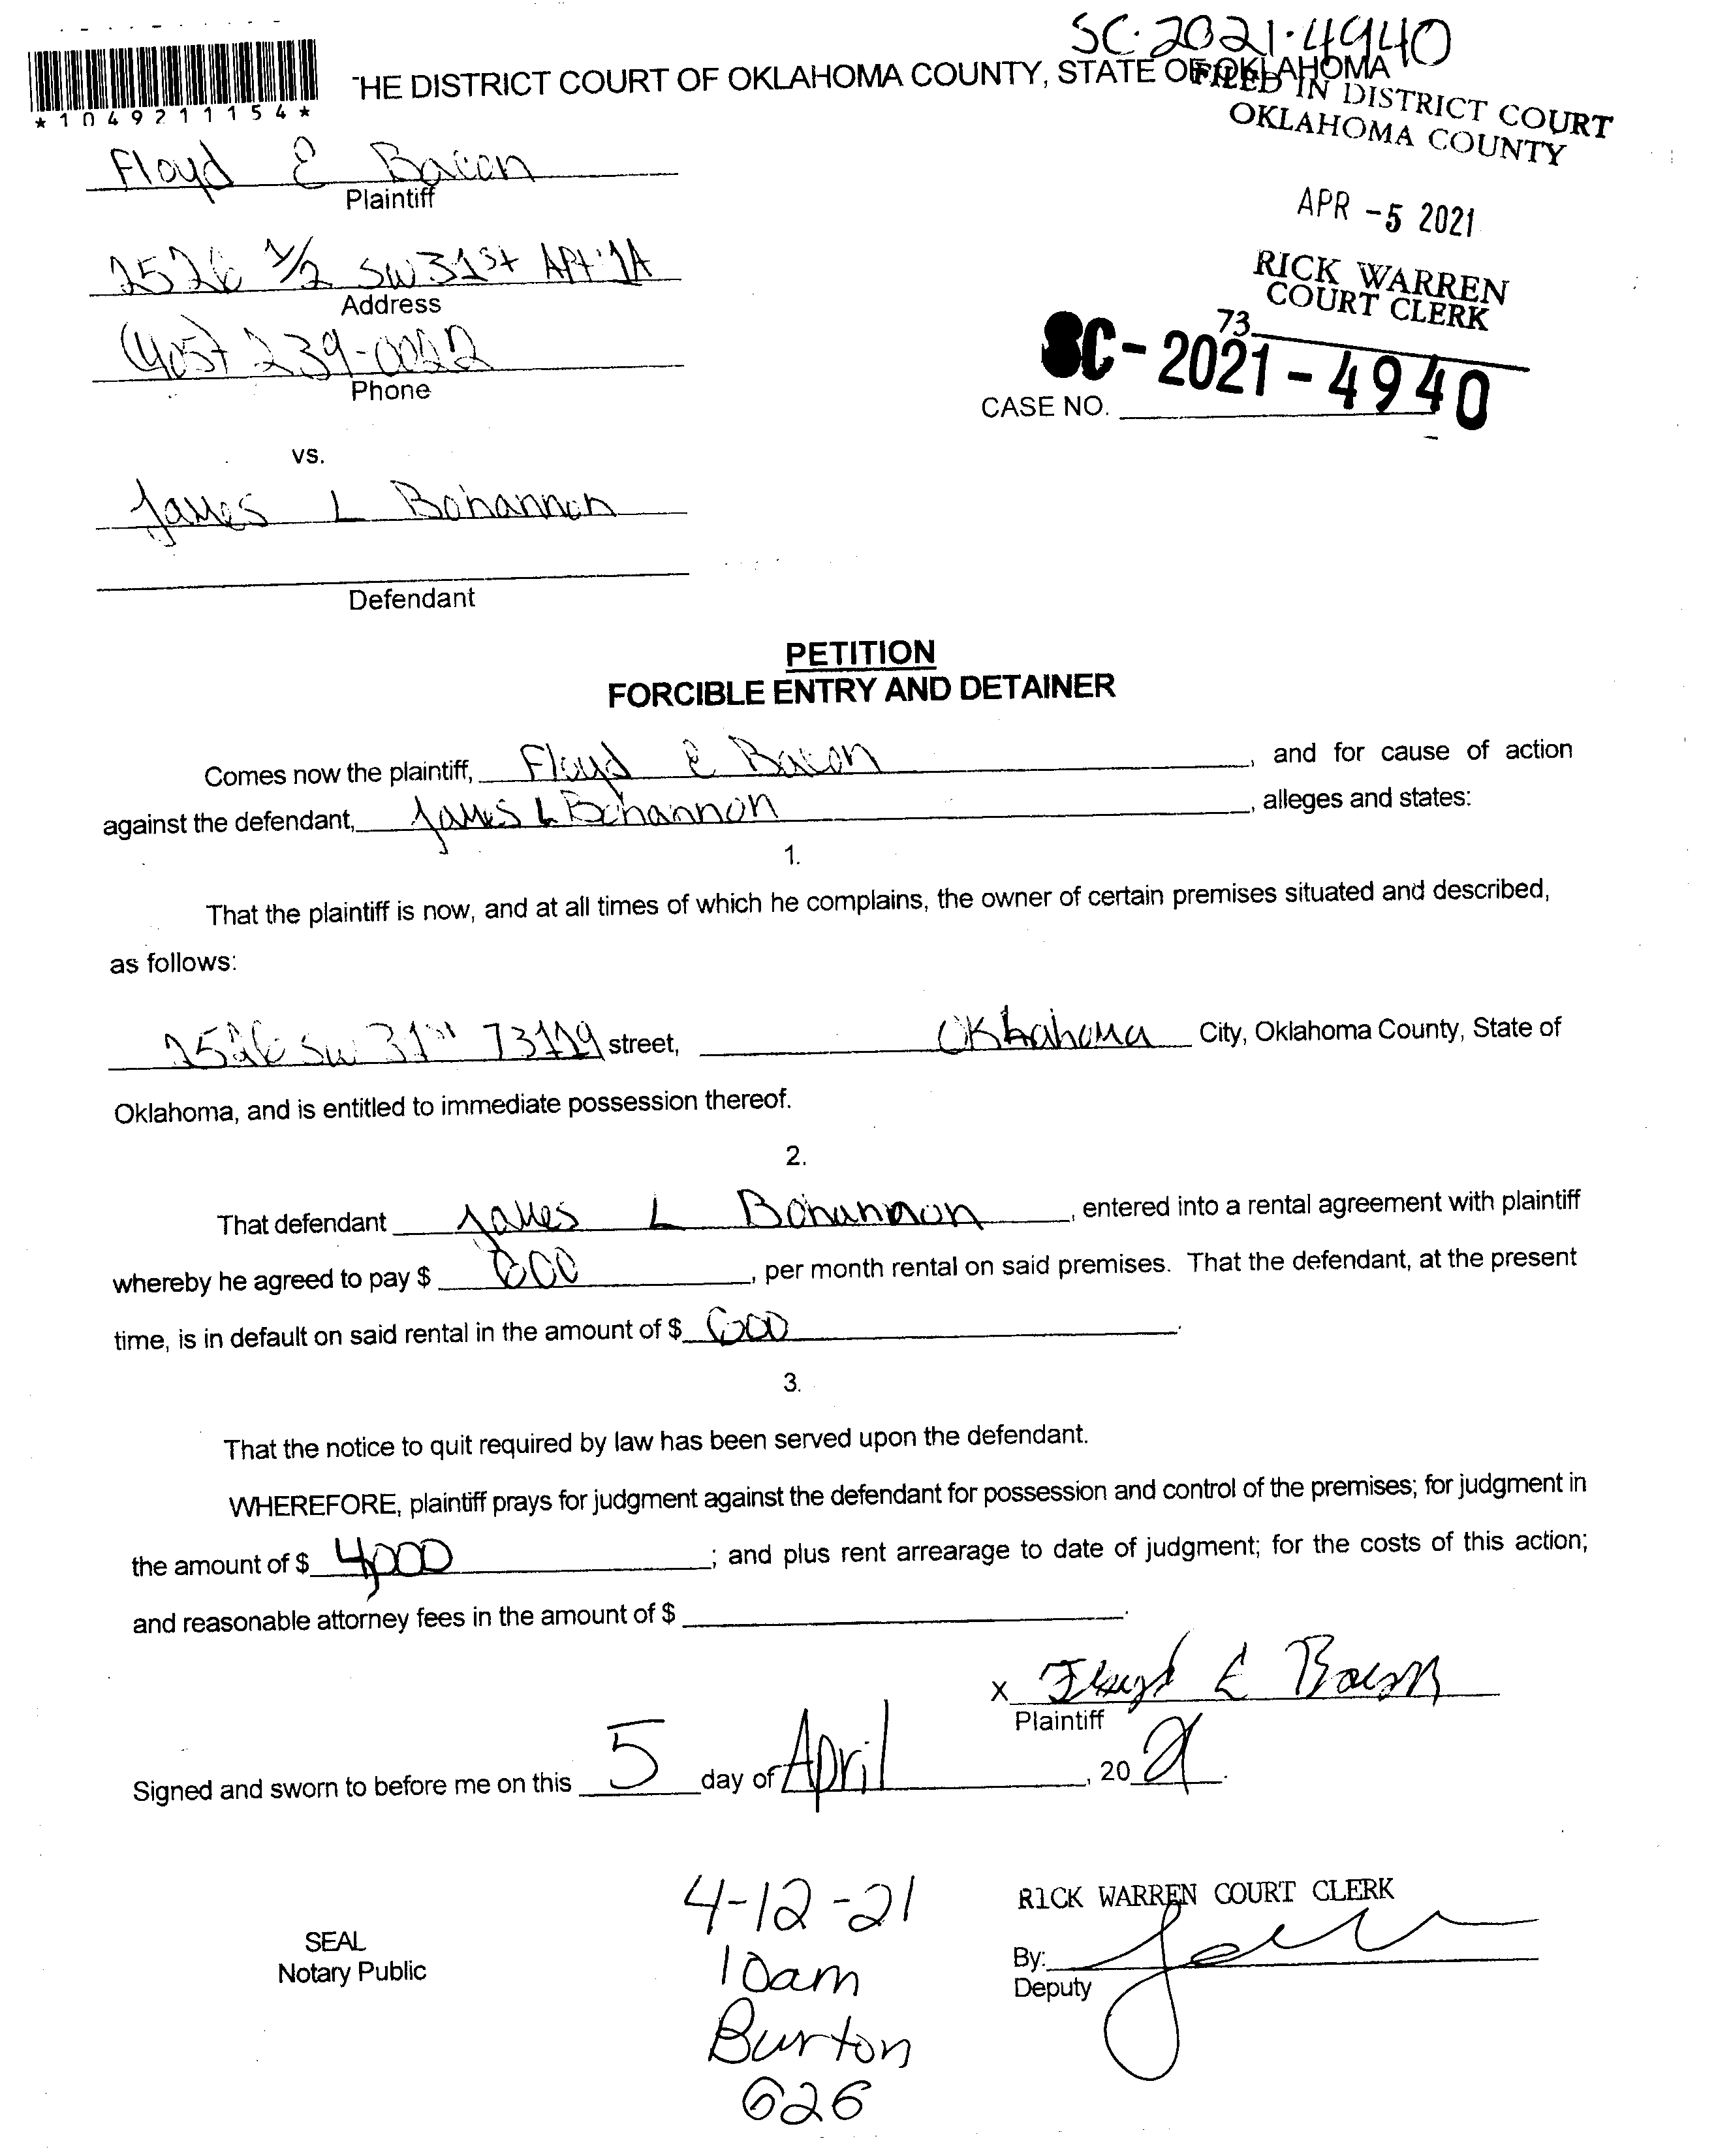 SC-2021-4940
*1049211154*
THE DISTRICT COURT OF OKLAHOMA COUNTY, STATE OF OKLAHOMA
FILED IN DISTRICT COURT
OKLAHOMA COUNTY
Floyd E Bacon
Plaintiff
APR -5 2021
2526 1/2 SW 31st APT 1A
Address
RICK WARREN
COURT CLERK
73
(405) 239-0022
Phone
SC-2021-4940
CASE NO.
vs.
James L Bohannon
Defendant
PETITION
FORCIBLE ENTRY AND DETAINER
Comes now the plaintiff, Floyd E Bacon, and for cause of action
against the defendant, James L Bohannon, alleges and states:
1.
That the plaintiff is now, and at all times of which he complains, the owner of certain premises situated and described,
as follows:
2526 SW 31st 73119 street, Oklahoma City, Oklahoma County, State of
Oklahoma, and is entitled to immediate possession thereof.
2.
That defendant James L Bohannon, entered into a rental agreement with plaintiff
whereby he agreed to pay $ 600, per month rental on said premises. That the defendant, at the present
time, is in default on said rental in the amount of $ 600.
3.
That the notice to quit required by law has been served upon the defendant.
WHEREFORE, plaintiff prays for judgment against the defendant for possession and control of the premises; for judgment in
the amount of $ 4,000; and plus rent arrearage to date of judgment; for the costs of this action;
and reasonable attorney fees in the amount of $
x Floyd E Bacon
Plaintiff
Signed and sworn to before me on this 5 day of April, 2021.
4-12-21
10am
Burton
626
RICK WARREN COURT CLERK
SEAL
Notary Public
By:
Deputy